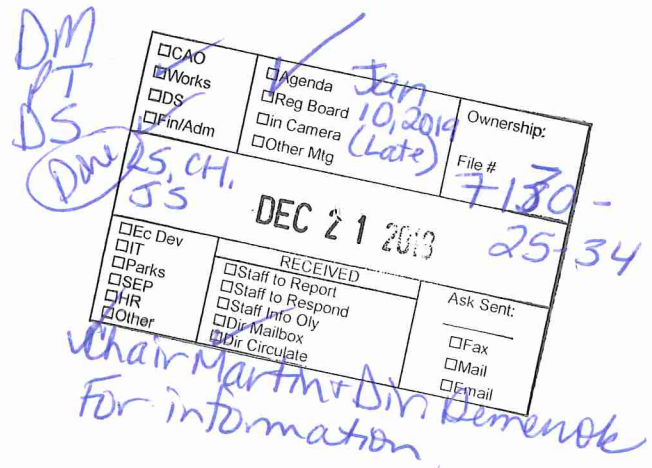 DM
PT
DS
Done
☐CAO
☐Works
☐DS
☐Fin/Adm
☐Agenda
☐Reg Board
☐in Camera
☐Other Mtg
Jan
10, 2019
(Late)
Ownership:
File #
7130-
25-34
DS, CH,
JS
DEC 21 2018
☐Ec Dev
☐IT
☐Parks
☐SEP
☐HR
☐Other
RECEIVED
☐Staff to Report
☐Staff to Respond
☐Staff Info Oly
☐Dir Mailbox
☐Dir Circulate
Ask Sent:
☐Fax
☐Mail
☐Email
Chair Martin + Dir. Demenok
For information